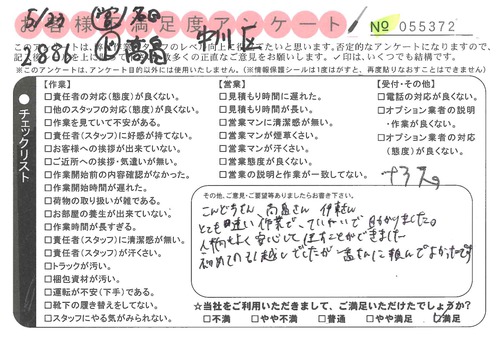 5/23
2886
中川区
お客様満足度アンケート
No 055372
記
※このアンケートは、アンケート目的以外には使用いたしません。(※情報保護シールは1度はがすと、再度貼りなおすことはできません)
チェックリスト
【作業】
□責任者の対応(態度)が良くない。
□他のスタッフの対応(態度)が良くない。
□作業を見ていて不安がある。
□責任者(スタッフ)に好感が持てない。
□お客様への挨拶が出来ていない。
□ご近所への挨拶・気遣いが無い。
□作業開始前の内容確認がなかった。
□作業開始時間が遅れた。
□荷物の取り扱いが雑である。
□お部屋の養生が出来ていない。
□作業時間が長すぎる。
□責任者(スタッフ)に清潔感が無い。
□責任者(スタッフ)が汗くさい。
□トラックが汚い。
□梱包資材が汚い。
□運転が不安(下手)である。
□靴下の履き替えをしてない。
□スタッフにやる気がみられない。
【営業】
□見積もり時間に遅れた。
□見積もり時間が長い。
□営業マンに清潔感が無い。
□営業マンが煙草くさい。
□営業マンが汗くさい。
□営業態度が良くない。
□営業の説明と作業が一致してない。
【受付・その他】
□電話の対応が良くない。
□オプション業者の説明
・作業が良くない。
□オプション業者の対応
(態度)が良くない。
その他、ご意見・ご要望等ありましたらお書き下さい。
こんどうさん、高畠さん 伊東さん
とても早い作業で、ていねいで助かりました。
人柄もよく安心して任すことができました
初めての引越しでしたが 貴社に頼んでよかったです
☆当社をご利用いただきまして、ご満足いただけたでしょうか?
□不満 □やや不満 □普通 □やや満足 ☑満足